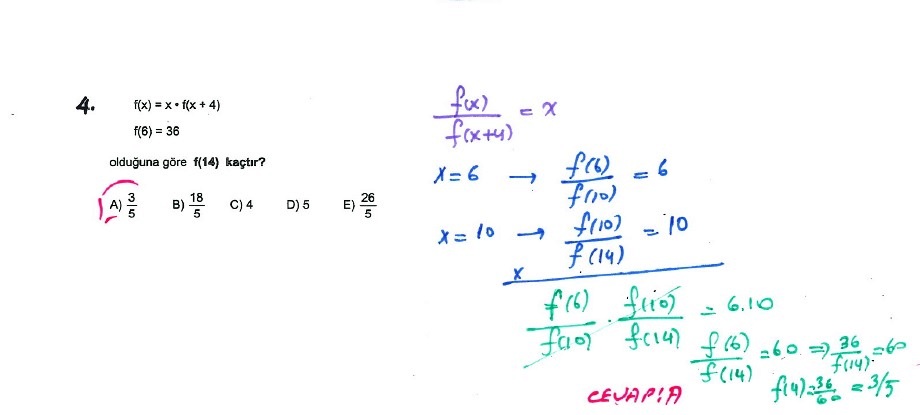 4. f(x) = x • f(x + 4)
f(6) = 36
olduğuna göre f(14) kaçtır?
A) 3/5 B) 18/5 C) 4 D) 5 E) 26/5
f(x)/f(x+4) = x
x = 6 → f(6)/f(10) = 6
x = 10 → f(10)/f(14) = 10
x
f(6)/f(10) . f(10)/f(14) = 6.10
f(6)/f(14) = 60 ⇒ 36/f(14) = 60
f(14) = 36/60 = 3/5
CEVAP: A